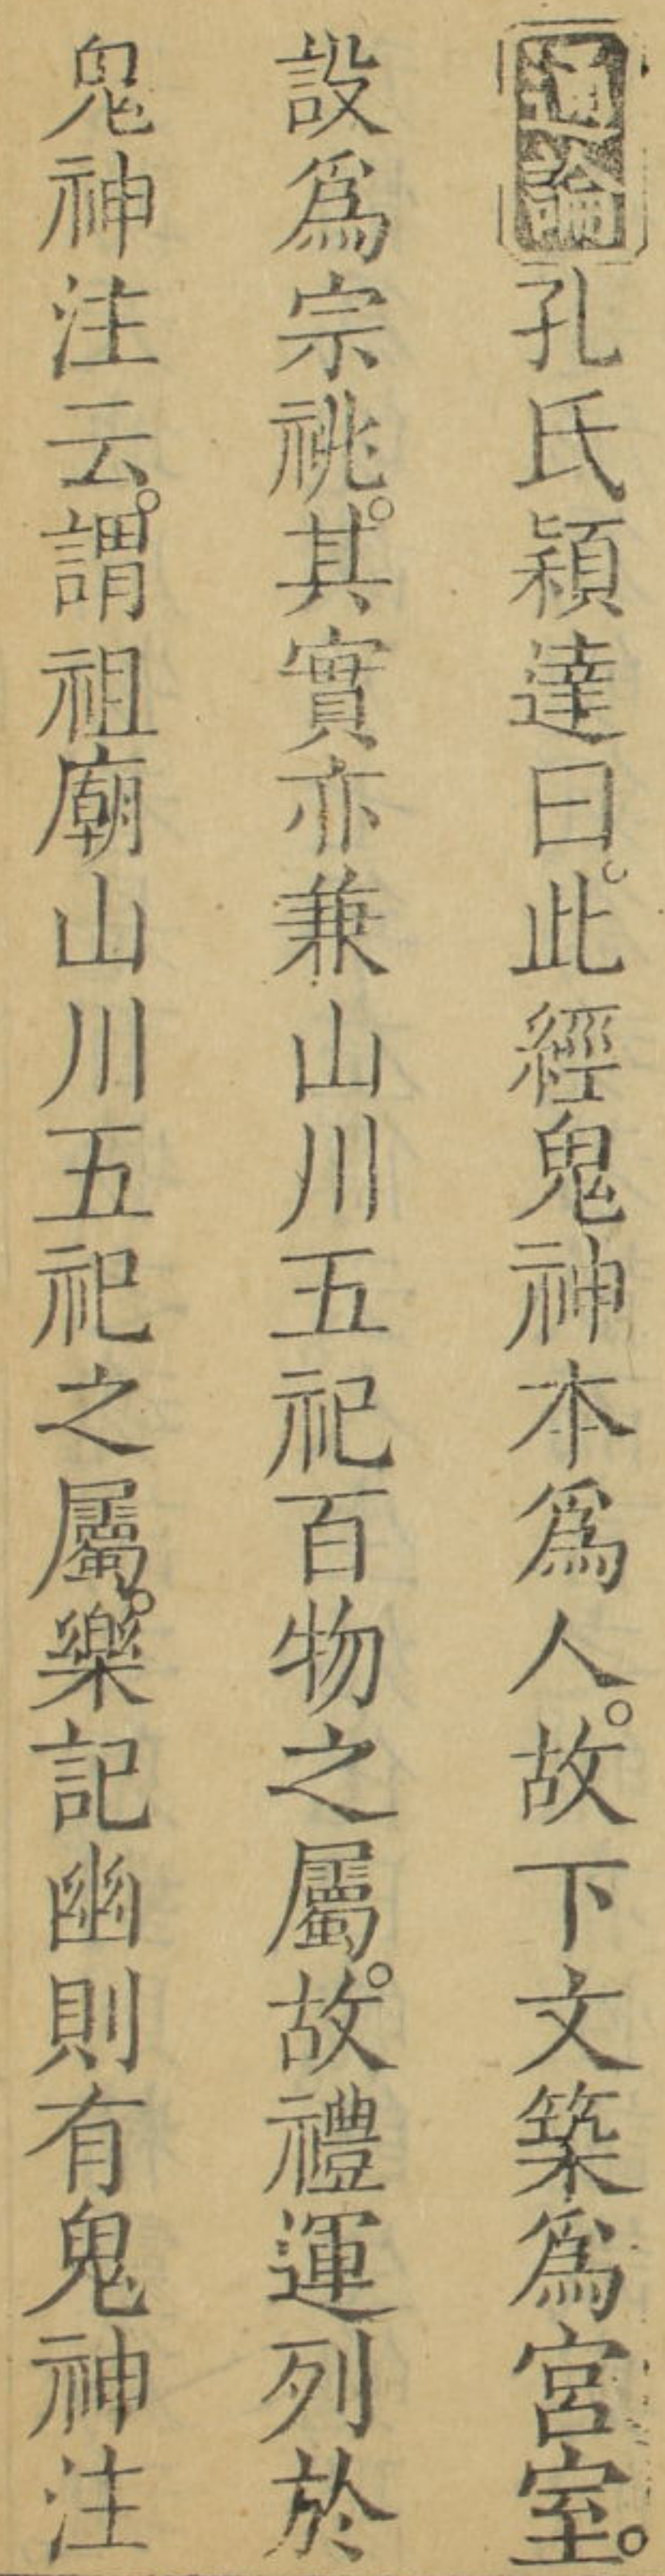 通論孔氏穎達曰。此經鬼神本爲人。故下文築爲宮室。
設爲宗祧。其實亦兼山川五祀百物之屬。故禮運列於
鬼神注云。謂祖廟山川五祀之屬。樂記幽則有鬼神注